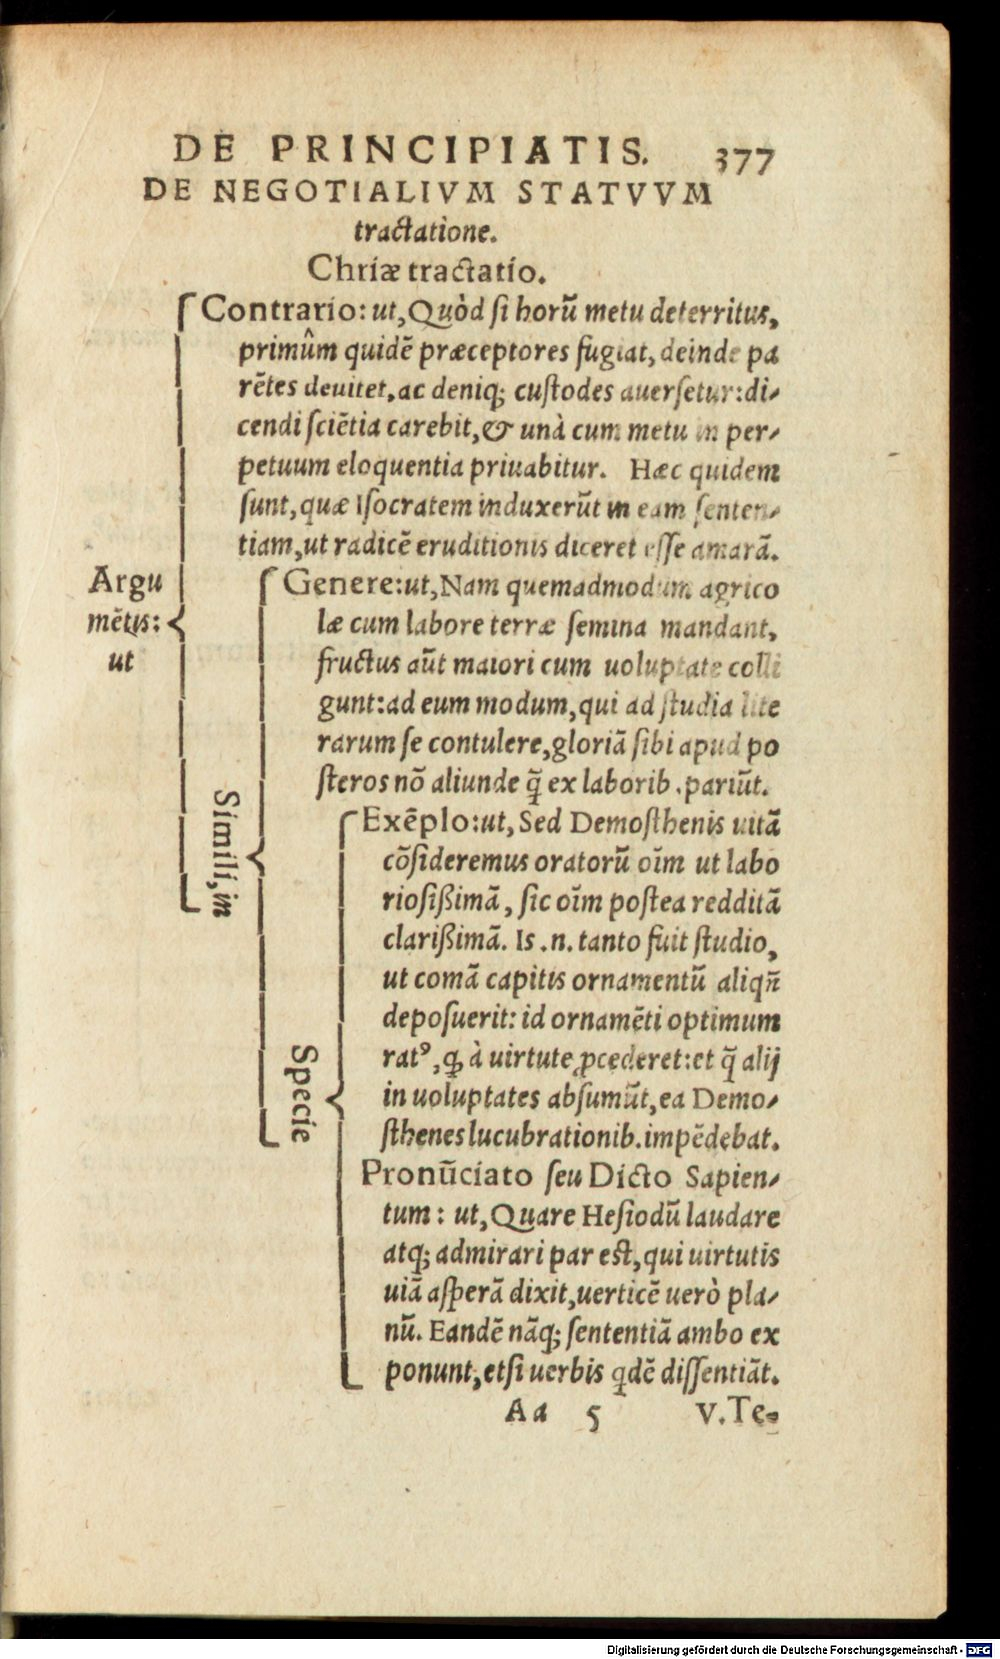 DE PRINCIPIATIS. 377
DE NEGOTIALIVM STATVVM
tractatione.
Chriæ tractatio.
Contrario: ut, Quòd si horũ metu deterritus,
primûm quidẽ præceptores fugiat, deinde pa
rẽtes deuitet, ac deniq; custodes auersetur: di-
cendi sciẽtia carebit, & unà cum metu in per-
petuum eloquentia priuabitur. Hæc quidem
sunt, quæ Isocratem induxerũt in eam senten-
tiam, ut radicẽ eruditionis diceret esse amarã.
Argu
mẽtis:
ut
Simili, in
Genere: ut, Nam quemadmodum agrico
læ cum labore terræ semina mandant,
fructus aũt maiori cum uoluptate colli
gunt: ad eum modum, qui ad studia lite
rarum se contulere, gloriã sibi apud po
steros nõ aliunde q̃ ex laborib. pariũt.
Specie
Exẽplo: ut, Sed Demosthenis uitã
cõsideremus oratorũ oĩm ut labo
riosißimã, sic oĩm postea redditã
clarißimã. Is .n. tanto fuit studio,
ut comã capitis ornamentũ aliqñ
deposuerit: id ornamẽti optimum
ratꝰ, ꝙ à uirtute ꝓcederet: et q̃ alij
in uoluptates absumũt, ea Demo-
sthenes lucubrationib. impẽdebat.
Pronũciato seu Dicto Sapien-
tum: ut, Quare Hesiodũ laudare
atq; admirari par est, qui uirtutis
uiã asperã dixit, uerticẽ uerò pla-
nũ. Eandẽ nãq; sententiã ambo ex
ponunt, etsi uerbis qdẽ dissentiãt.
Aa 5 V. Te-
Digitalisierung gefördert durch die Deutsche Forschungsgemeinschaft - DFG